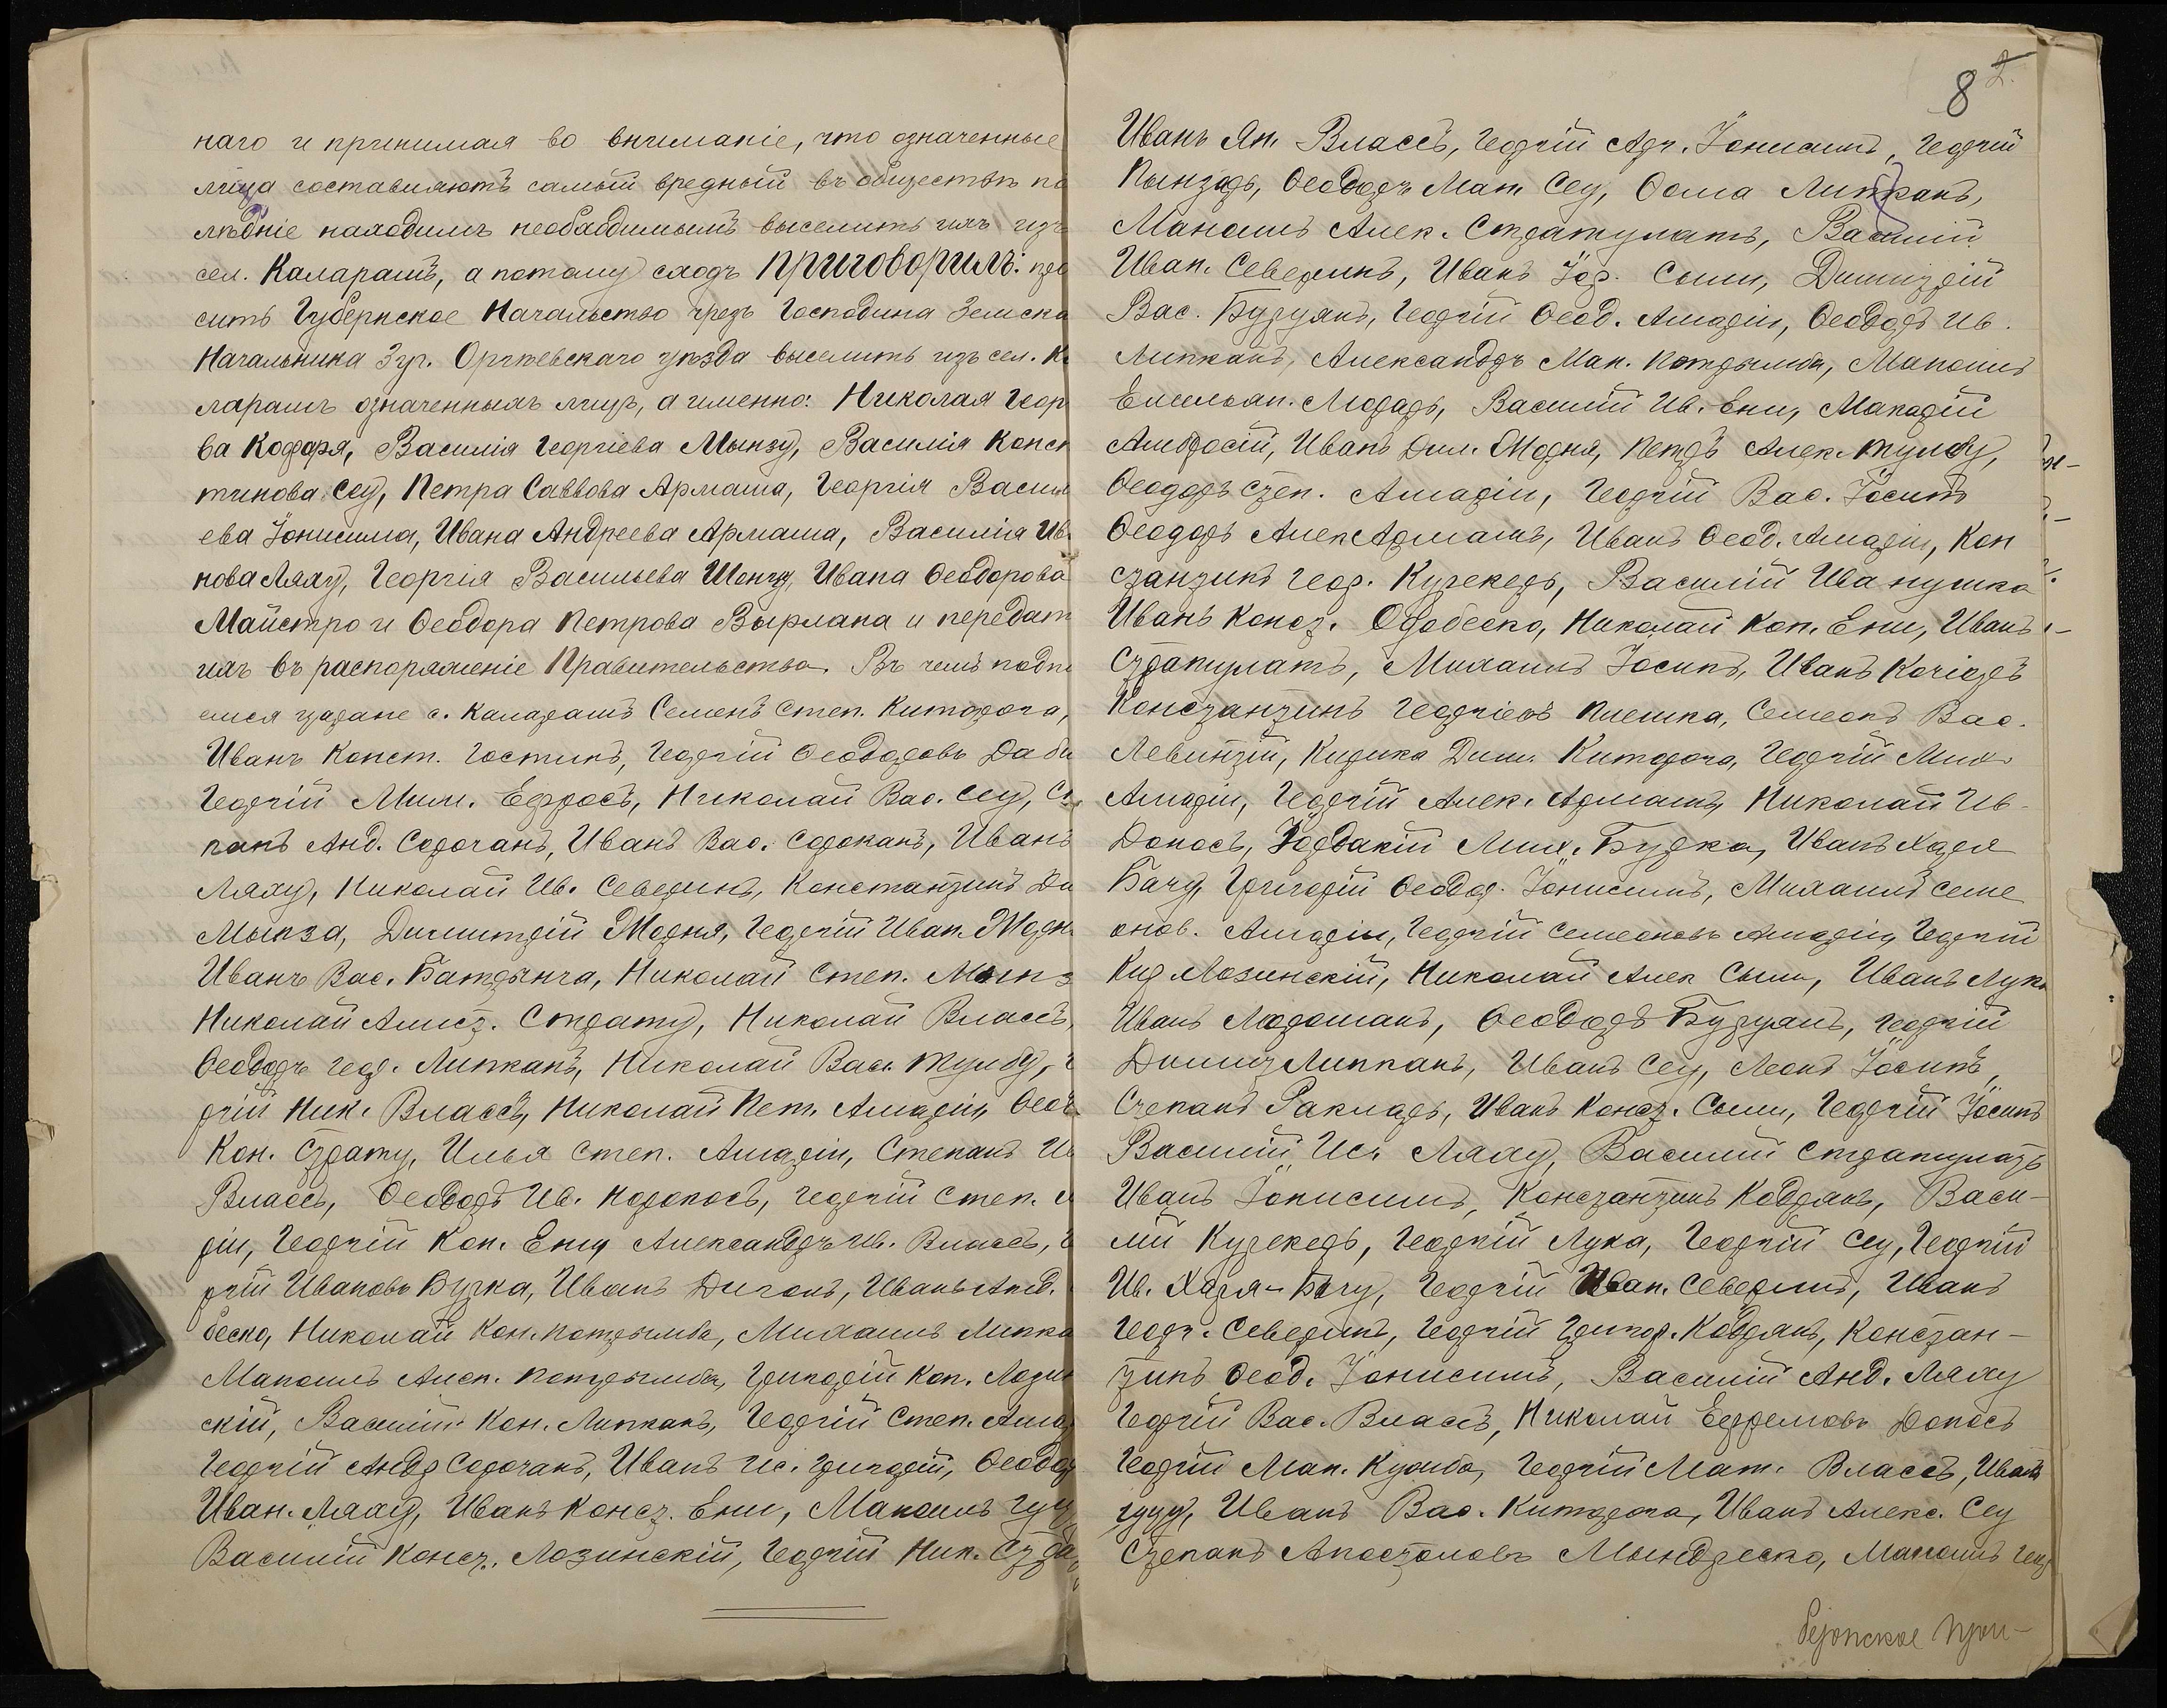 наго и принимая во вниманіе, что означенные
лица составляютъ самый вредный въ обществѣ по
слѣдніе находимъ необходимымъ выселить ихъ изъ
сел. Калараши, а потому сходъ приговорилъ: про
сить Губернское Начальство чрезъ Господина Земска
Начальника 3 уч. Оргѣевскаго уѣзда выселить изъ сел. К
ларашъ означенныхъ лицъ, а именно: Николая Геор
ва Кофаря, Василія Георгіева Мынзу, Василія Конст
тинова Сеу, Петра Саввова Армаша, Георгія Васил
ева Іонисима, Ивана Андреева Армаша, Василія Ив.
нова Ляху, Георгія Васильева Ивана Ѳеодорова
Майстро и Ѳеодора Петрова Вырлана и передат
ихъ въ распоряженіе Правительства. Въ чемъ подпи
емся царане с. Каларашъ Семенъ Степ. Китороага,
Иванъ Конст. Гостинъ, Георгій Ѳеодоровъ Даби
Георгій Мих. Ефросъ, Николай Вас. Сеу, Сте
панъ Анд. Сорочанъ, Иванъ Вас. Сорокавъ, Иванъ
Ляху, Николай Ив. Северинъ, Константинъ Ди
Мынза, Димитрій Жорня, Георгій Иван. Жорн
Иванъ Вас. Батрынча, Николай Степ. Мынз
Николай Страту, Николай Влассъ,
Ѳеодоръ Геор. Липканъ, Николай Вас. Тумбу,
ргій Ник. Влассъ, Николай Пет. Амарій, Ѳеод
Кон. Страту, Илья Степ. Амарій, Степанъ Ив
Влассъ, Ѳеодоръ Ив. Норокосъ, Георгій Степ.
рій, Георгій Кон. Ени, Александръ Ив. Влассъ,
ргій Ивановъ Бурка, Иванъ Диконъ, Иванъ
беско, Николай Кон. Потрымба, Михаилъ Липка
Манолий Алек. Потрымба, Григорій Кон. Лозин
скій, Василій Кон. Липканъ, Георгій Степ. Амар
Георгій Андр Сорочанъ, Иванъ Ис. Григорій, Ѳеодор
Иван. Ляху, Иванъ Конст. Ени, Манолий Гуцу
Василій Конст. Лозинскій, Георгій Ник. Стра
8
Иванъ Ян. Влассъ, Георгій Адр. Іонисимъ, Георгій
Ѳеодоръ Мат. Сеу, Ѳома Липканъ,
Манолий Алек. Стратулатъ, Василій
Иван. Северинъ, Иванъ Іор. Сыли, Димитрій
Вас. Бузуянъ, Георгій Ѳеод. Амарій, Ѳеодоръ Ив.
Липканъ, Александръ Ман. Потрымба, Манолий
Емельян. Люрарь, Василій Ив. Ени, Макарій
Амвросій, Иванъ Дим. Жорня, Петръ Алек. Тумбу,
Ѳеодоръ Степ. Амарій, Георгій Вас. Іосипъ
Ѳеодоръ Алек Армашъ, Иванъ Ѳеод. Амарій, Кон
стантинъ Геор. Кучекеръ, Василій Иванушка
Иванъ Конст. Одобеско, Николай Кон. Ени, Иванъ
Стратулатъ, Михаилъ Іосипъ, Иванъ Кочіоръ
Константинъ Георгіевъ Плешка, Семеонъ Вас.
Левинтій, Кирика Дим. Китороага, Георгій Мих.
Амарій, Георгій Алек. Армашъ, Николай Ив.
Доносъ, Іордакій Мих. Бурка, Иванъ Харя
Бачу, Григорій Ѳеодор. Іонисимъ, Михаилъ Семе
онов. Амарій, Георгій Семеоновъ Амарій, Георгій
Кир Лозинскій, Николай Алек Сыли, Иванъ Лука
Иванъ Лодоманъ, Ѳеодоръ Бузуянъ, Георгій
Димит Липканъ, Иванъ Сеу, Леонъ Іосипъ,
Степанъ Ракларь, Иванъ Конст. Сыли, Георгій Іосипъ
Василій Ис. Ляху, Василій Стратулатъ
Иванъ Іонисимъ, Константинъ Кодрянъ, Васи-
лій Кучекеръ, Георгій Лука, Георгій Сеу, Георгій
Ив. Харя-Бачу, Георгій Иван. Северинъ, Иванъ
Георг. Северинъ, Георгій Григор. Кодрянъ, Констан-
тинъ Ѳеод. Іонисимъ, Василій Анд. Ляху
Георгій Вас. Влассъ, Николай Ефремовъ Доносъ
Георгій Ман. Георгій Мат. Влассъ, Иванъ
Гуцу, Иванъ Вас. Китороага, Иванъ Алекс. Сеу
Степанъ Апостоловъ Мындреско, Манолий